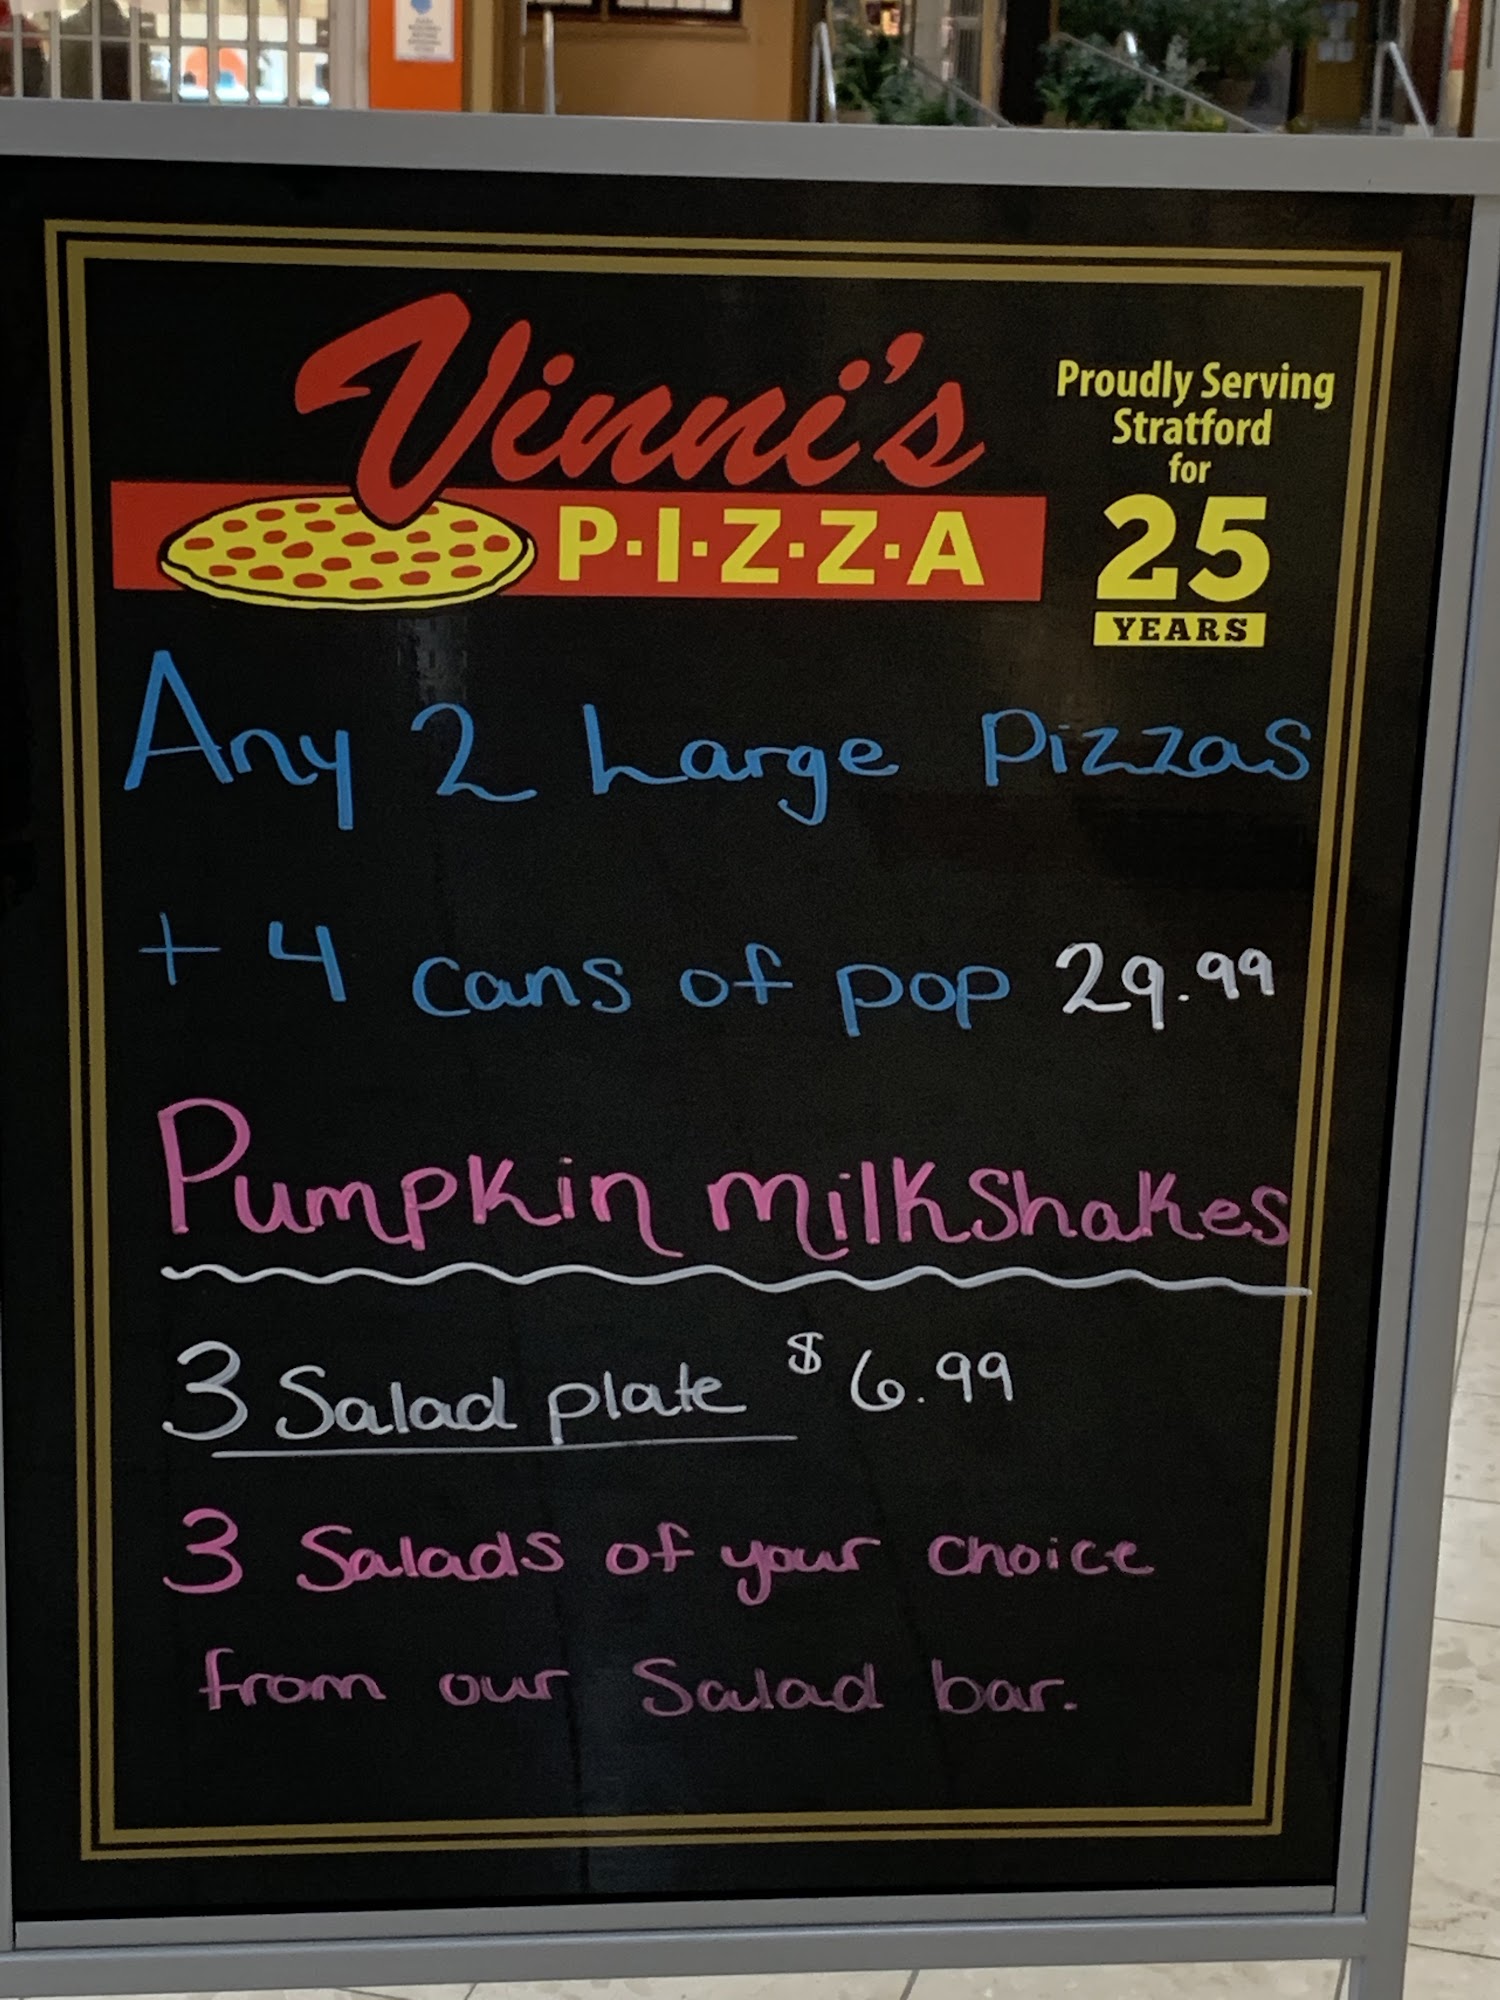 Vinni's
P·I·Z·Z·A
Proudly Serving
Stratford
for
25
YEARS
Any 2 Large Pizzas
+ 4 cans of pop 29.99
Pumpkin milkshakes
3 Salad plate $6.99
3 Salads of your choice
from our Salad bar.